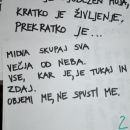 KRATKO JE ŽIVLJENJE,
PREKRATKO JE...
MIDVA SKUPAJ SVA
VEČJA OD NEBA.
VSE, KAR JE, JE TUKAJ IN
ZDAJ.
OBJEMI ME, NE SPUSTI ME.
2